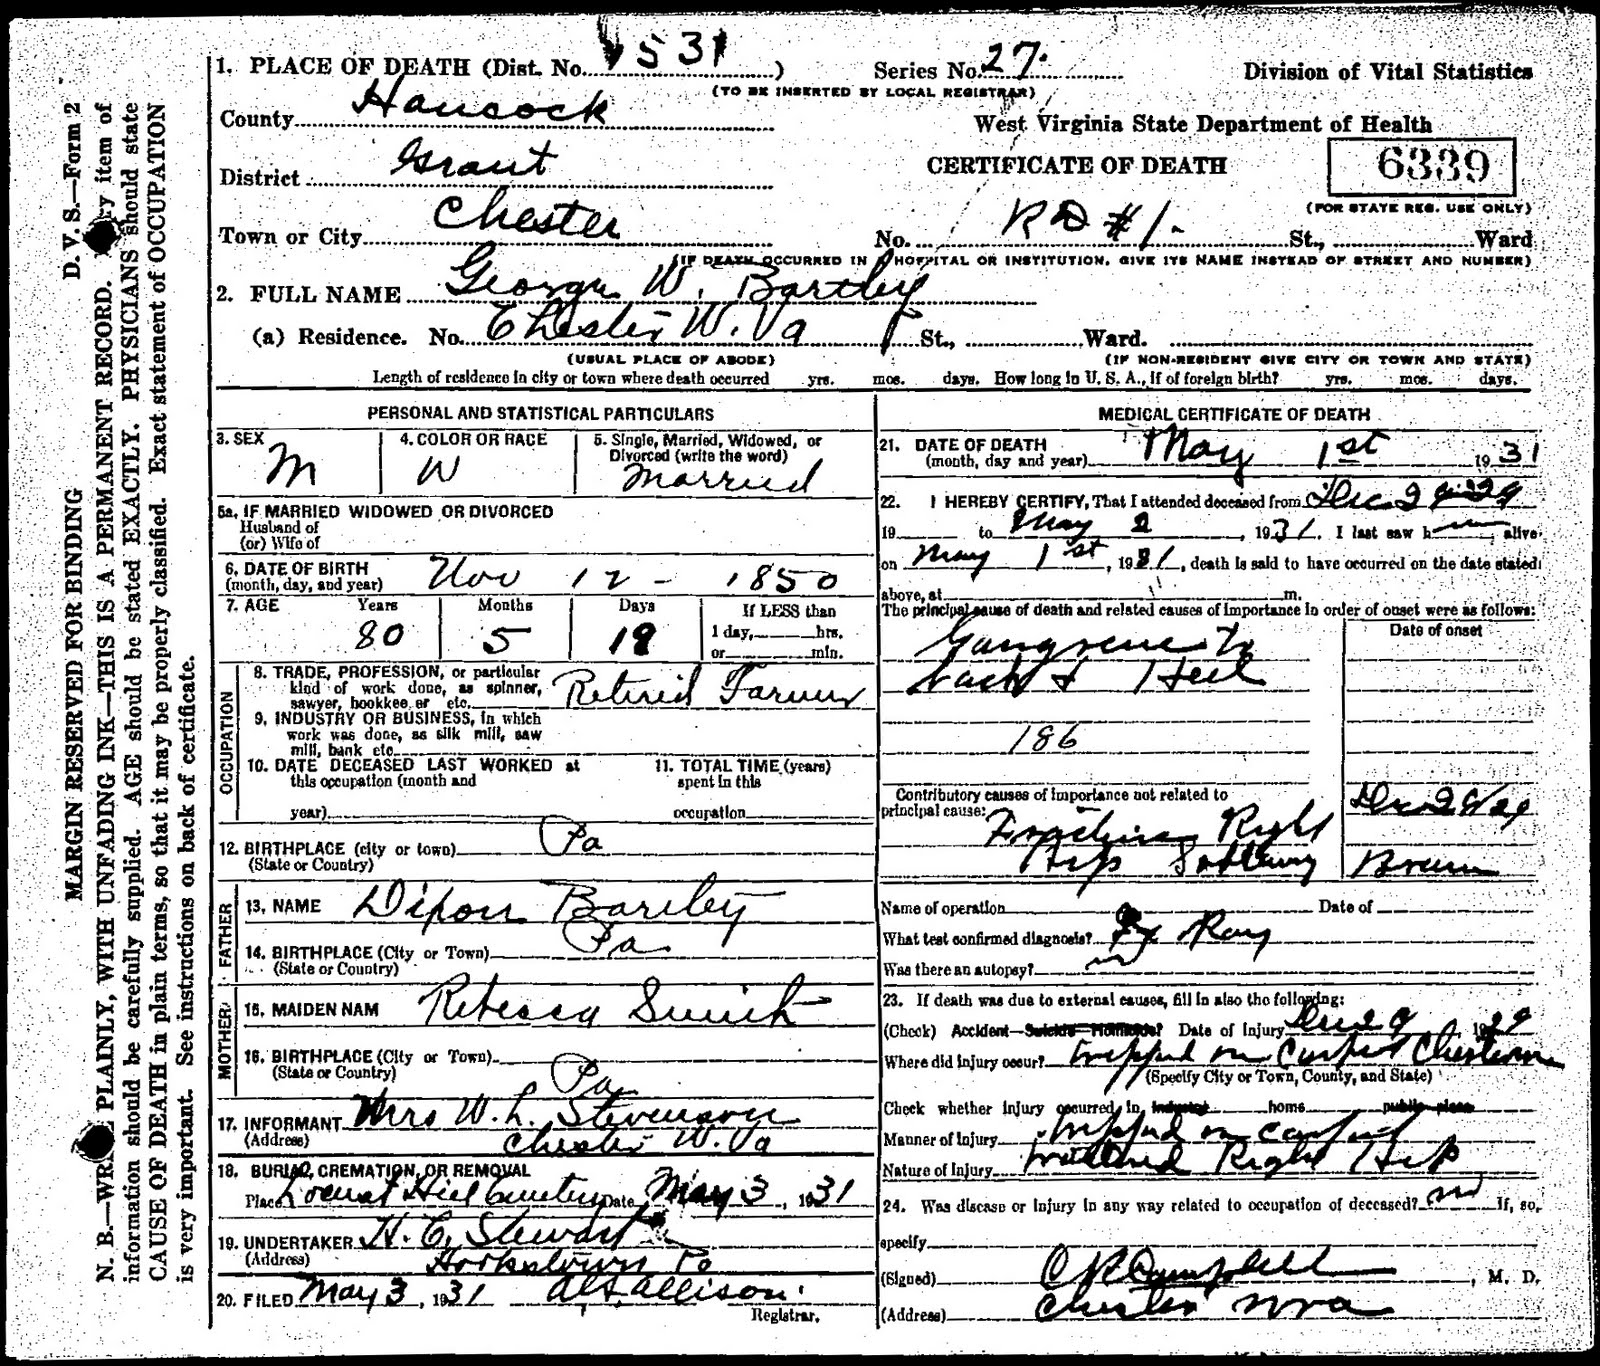 1. PLACE OF DEATH (Dist. No. 531 )
Series No. 27.
Division of Vital Statistics
(TO BE INSERTED BY LOCAL REGISTRAR)
County Hancock
West Virginia State Department of Health
District Grant
CERTIFICATE OF DEATH
6339
(FOR STATE REG. USE ONLY)
Town or City Chester
No. RD #1. St., Ward
(IF DEATH OCCURRED IN A HOSPITAL OR INSTITUTION, GIVE ITS NAME INSTEAD OF STREET AND NUMBER)
2. FULL NAME George W. Bartley
(a) Residence. No. Chester W. Va St., Ward.
(USUAL PLACE OF ABODE) (IF NON-RESIDENT GIVE CITY OR TOWN AND STATE)
Length of residence in city or town where death occurred yrs. mos. days. How long in U. S. A., if of foreign birth? yrs. mos. days.
PERSONAL AND STATISTICAL PARTICULARS
3. SEX
M
4. COLOR OR RACE
W
5. Single, Married, Widowed, or
Divorced (write the word)
Married
5a. IF MARRIED WIDOWED OR DIVORCED
Husband of
(or) Wife of
6. DATE OF BIRTH
(month, day, and year) Nov 12 - 1850
7. AGE Years Months Days If LESS than
80 5 19
1 day, hrs.
or min.
OCCUPATION
8. TRADE, PROFESSION, or particular
kind of work done, as spinner,
sawyer, bookkeeper etc. Retired Farmer
9. INDUSTRY OR BUSINESS, in which
work was done, as silk mill, saw
mill, bank etc.
10. DATE DECEASED LAST WORKED at
this occupation (month and
year)
11. TOTAL TIME (years)
spent in this
occupation
12. BIRTHPLACE (city or town) Pa
(State or Country)
FATHER
13. NAME Dixon Bartley
14. BIRTHPLACE (City or Town) Pa
(State or Country)
MOTHER
15. MAIDEN NAM Rebecca Smith
16. BIRTHPLACE (City or Town)
(State or Country) Pa
17. INFORMANT Mrs W. L. Stevenson
(Address) Chester W. Va
18. BURIAL, CREMATION, OR REMOVAL
Place Locust Hill Cemetery Date May 3, 1931
19. UNDERTAKER H. C. Stewart
(Address) Hookstown Pa
20. FILED May 3, 1931 Allison
Registrar.
MEDICAL CERTIFICATE OF DEATH
21. DATE OF DEATH
(month, day and year) May 1st 1931
22. I HEREBY CERTIFY, That I attended deceased from Dec 29 29
19 to May 2, 1931. I last saw h alive
on May 1st, 1931, death is said to have occurred on the date stated
above, at m.
The principal cause of death and related causes of importance in order of onset were as follows:
Date of onset
Gangrene
& Heel
186
Contributory causes of importance not related to
principal cause:
Dec 29/29
Fracture Right
Hip
Name of operation Date of
What test confirmed diagnosis? X Ray
Was there an autopsy? no
23. If death was due to external causes, fill in also the following:
(Check) Accident Suicide Homicide? Date of Injury Dec 29 1929
Where did injury occur? tripped on Carpet Chester
(Specify City or Town, County, and State)
Check whether injury occurred in industry home public place
Manner of Injury tripped on carpet
Nature of Injury Fractured Right Hip
24. Was disease or injury in any way related to occupation of deceased? no If, so,
specify
(Signed) Campbell, M. D.
(Address) Chester W Va
D. V. S.—Form 2
MARGIN RESERVED FOR BINDING
N. B.—WRITE PLAINLY, WITH UNFADING INK—THIS IS A PERMANENT RECORD. Every item of
information should be carefully supplied. AGE should be stated EXACTLY. PHYSICIANS should state
CAUSE OF DEATH in plain terms, so that it may be properly classified. Exact statement of OCCUPATION
is very important. See instructions on back of certificate.